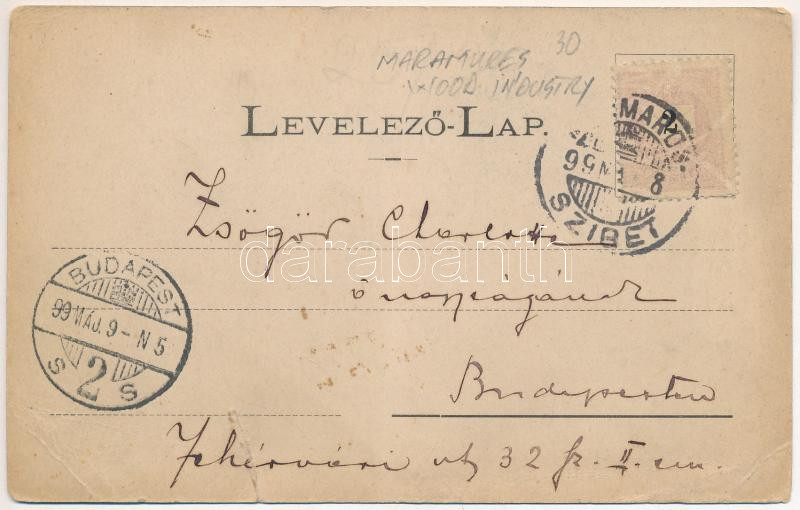 30
MARAMURES
WOOD INDUSTRY
LEVELEZŐ-LAP.
MARO
99 MÁ 8
SZIGET
Zsögör Charlotte
önagyságának
Budapesten
Fehérvári út 32 sz. II. em.
BUDAPEST
99 MÁJ. 9 - N 5
S 2 S
darabanth